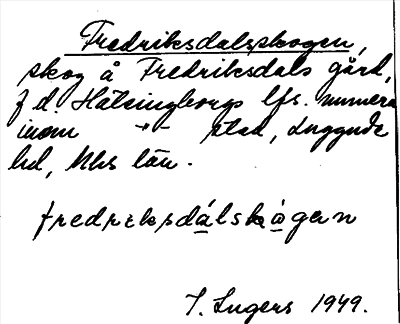 Fredriksdalsskogen,
skog å Fredriksdals gård,
f d. Hälsingborgs lfs. numera
inom -"- stad, Luggude
hd, Mhs län.
fredriksdálskògen
I. Ingers 1949.